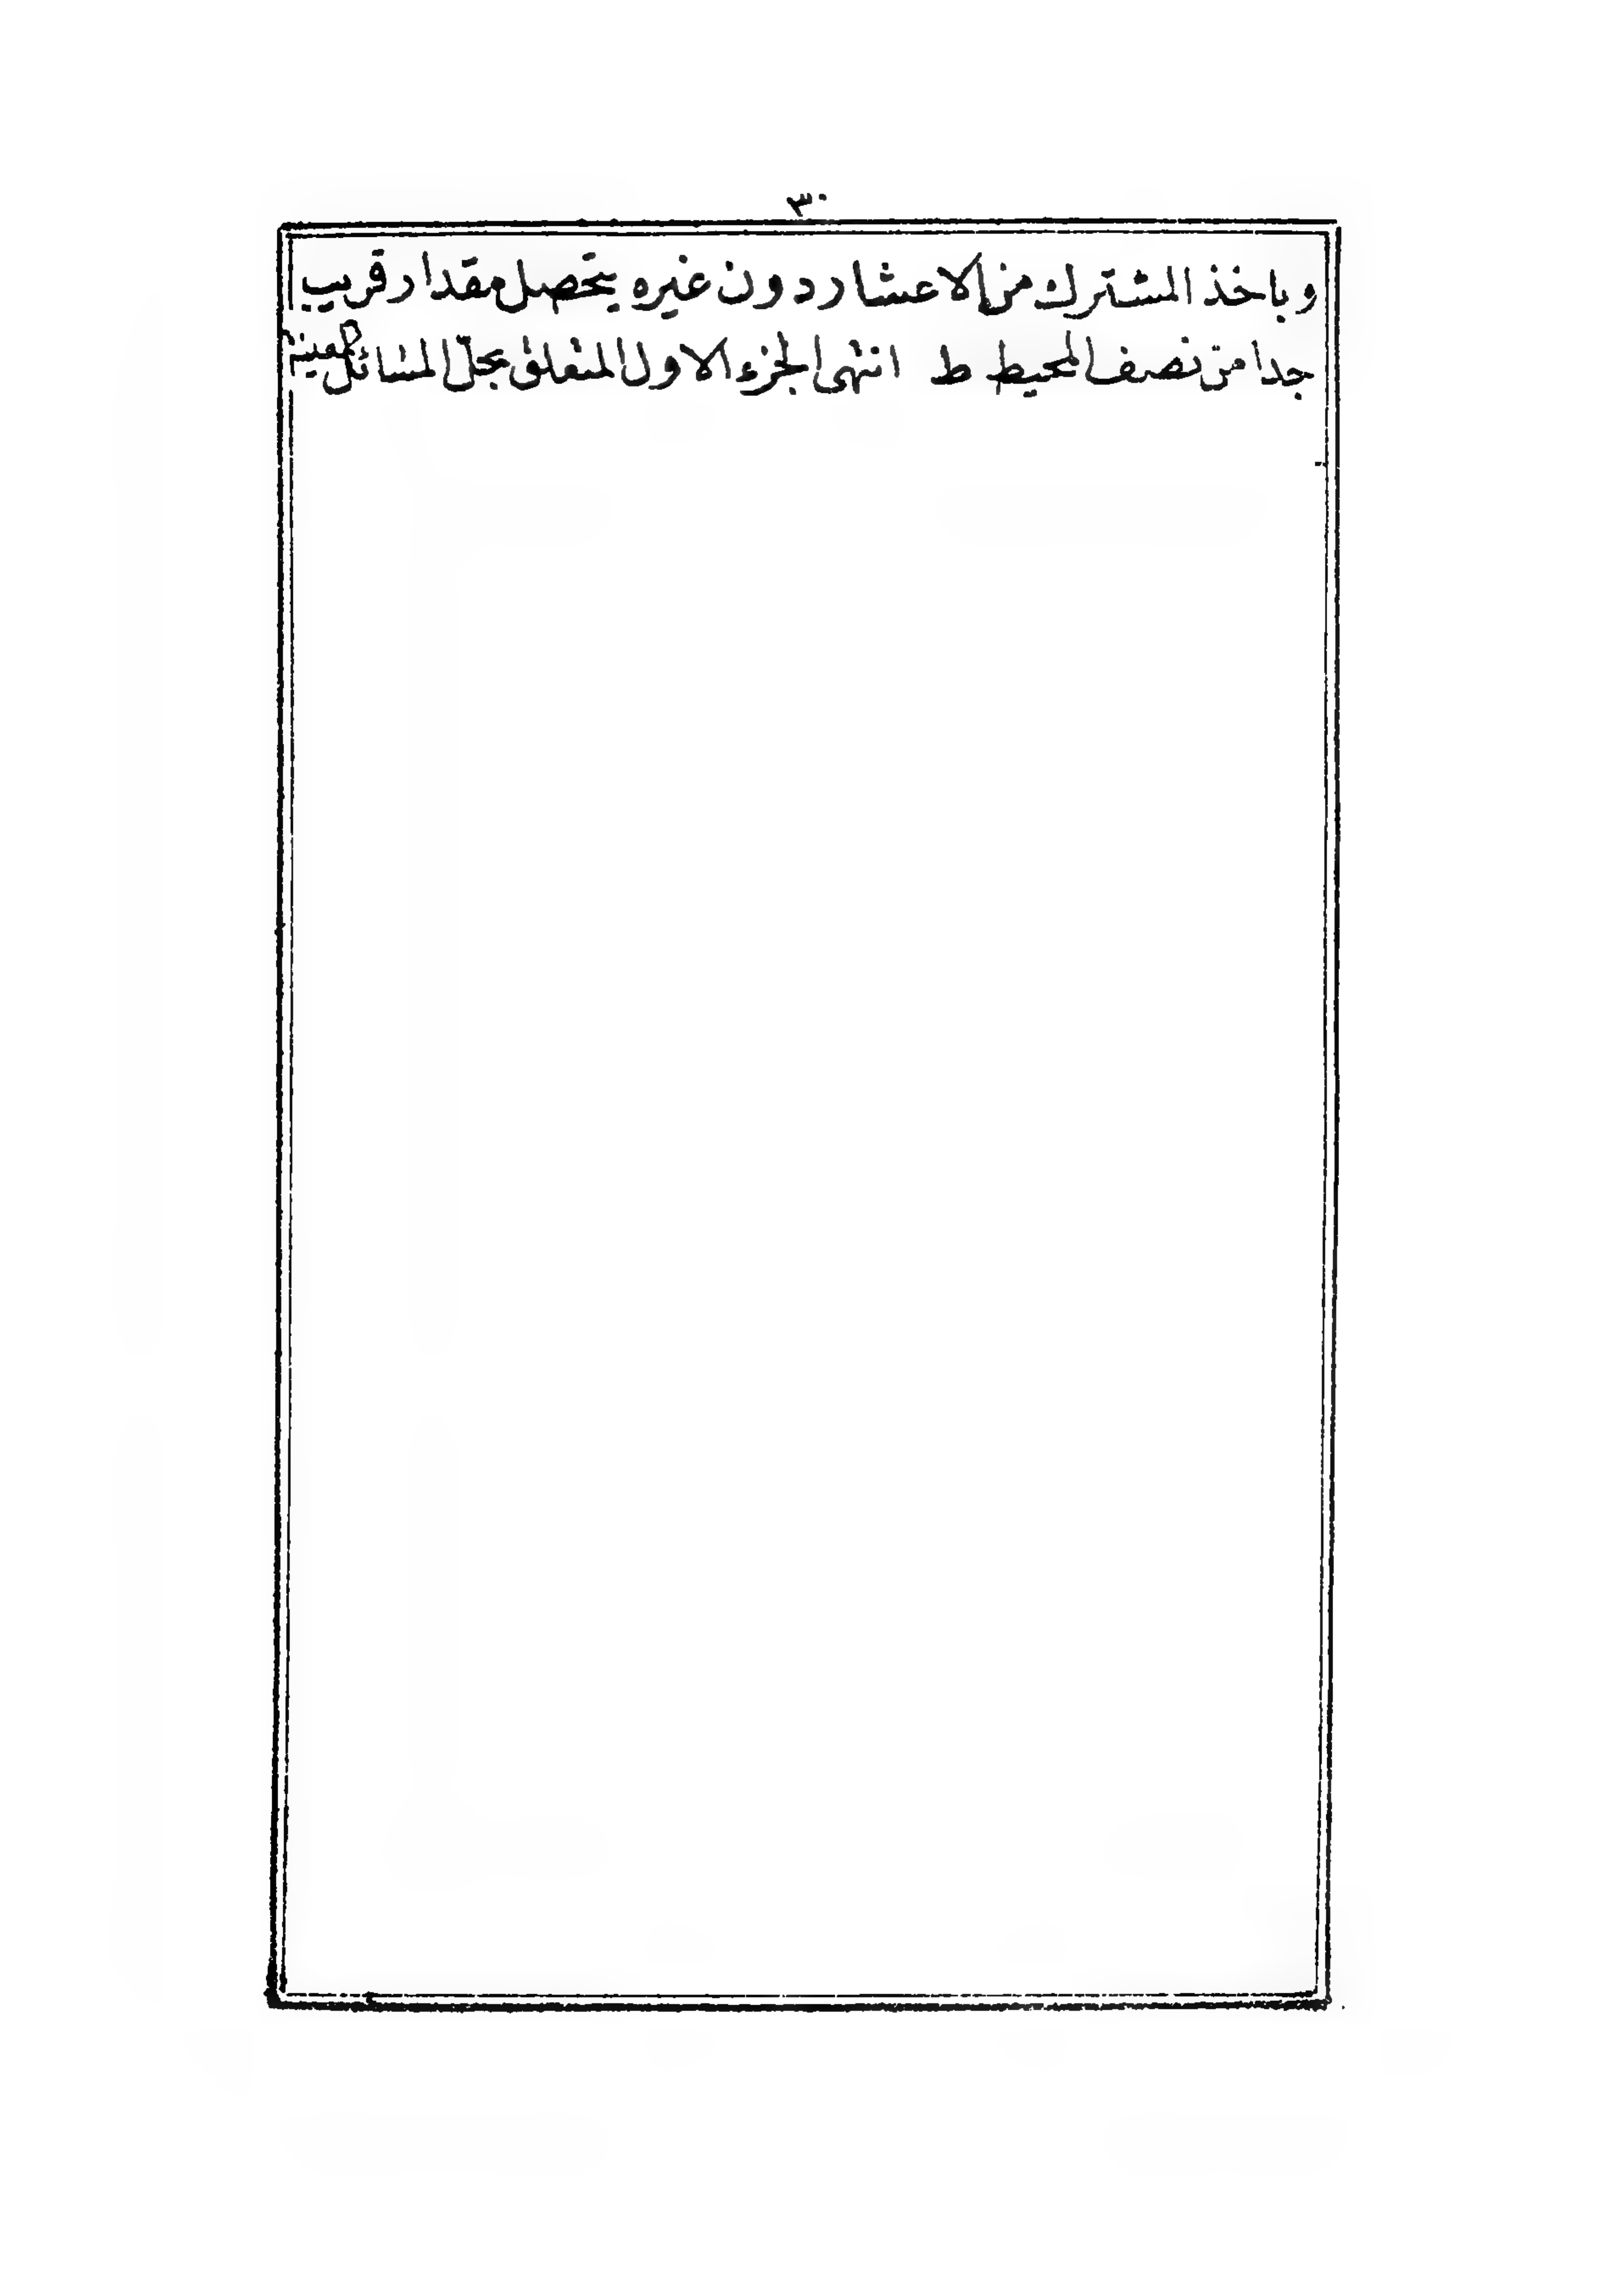 ٣٠
وباخذ المشترك من الاعشار دون غيره يتحصل مقدار قريب
جدا من نصف المحيط ط انتهى الجزء الاول المتعلق بحل المسائل المعينة